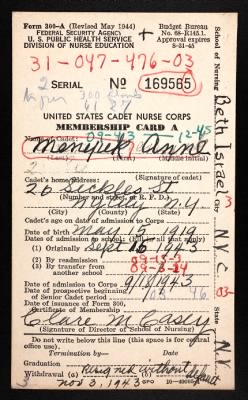 Form 300-A (Revised May 1944)
FEDERAL SECURITY AGENCY
U. S. PUBLIC HEALTH SERVICE
DIVISION OF NURSE EDUCATION
Budget Bureau
No. 68-R145.1.
Approval expires
8-31-45
31-047-476-03
2
SERIAL No 169565
UNITED STATES CADET NURSE CORPS
MEMBERSHIP CARD A
09-43 12-45
Name of Cadet:
Anne
(Last) (First) (Middle initial)
Cadet's home address: (Signature of cadet)
26 Sickles St
(Number and street, or R. F. D.)
N.Y.
(City) (County) (State)
Cadet's age on date of admission to Corps
Date of birth May 15, 1919
Date of admission to school: (Fill in all that apply)
(1) Originally Sept 18, 1943
(2) By readmission
(3) By transfer from another school
Date of admission to Corps 9/18/1943
Date of prospective beginning of Senior Cadet period
Date of issuance of Form 300, Certificate of Membership
Clare M Casey
(Signature of Director of School of Nursing)
Do not write below this line (this space is for central office use).
Termination by— Date
Graduation
Withdrawal (a) Resigned without
Nov 3, 1943
GPO
School of Nursing Beth Israel
City N.Y.C.
03
State N.Y.